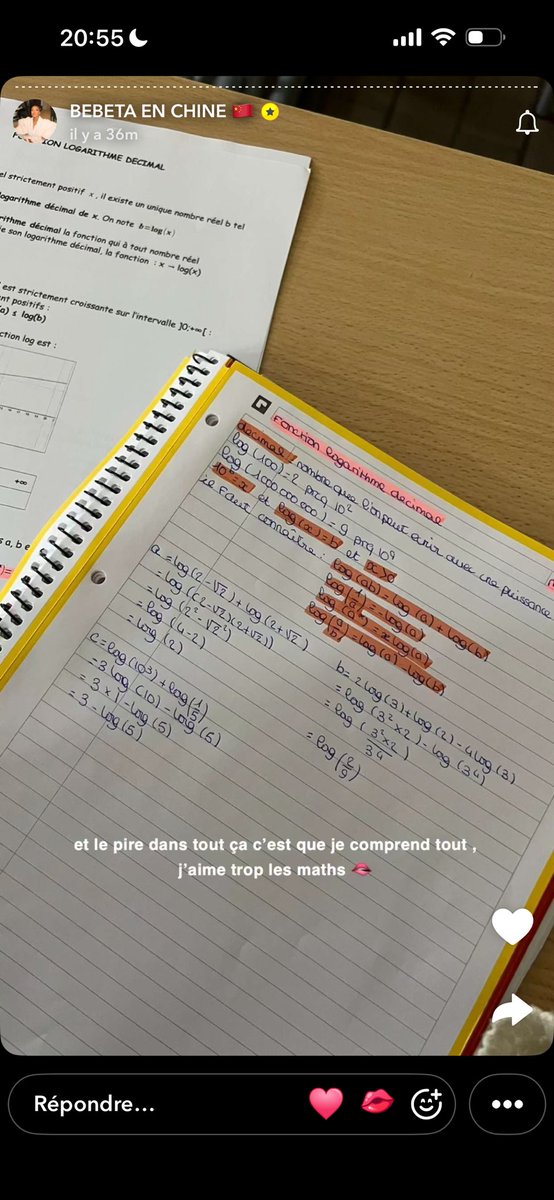 20:55
BEBETA EN CHINE
il y a 36m
ION LOGARITHME DECIMAL
el strictement positif x, il existe un unique nombre réel b tel
logarithme décimal de x. On note b=log(x)
rithme décimal la fonction qui à tout nombre réel
ie son logarithme décimal, la fonction : x → log(x)
est strictement croissante sur l'intervalle ]0;+∞[ :
nt positifs :
(a) ≤ log(b)
ction log est :
+∞
s a, b e
Fonction logarithme decimal
decimal : nombre que l'on peut ecrir avec une puissance
log (100) = 2 prcq 10²
log (1000 000 000) = 9 prcq 10⁹
10ᵇ = x et log(x) = b et x>0
il faut connaître : log(ab) = log(a) + log(b)
= -log(a)
= x log(a)
log(a/b) = log(a) - log(b)
a = log(2-√2) + log(2+√2)
= log((2-√2)(2+√2))
= log(2²-√2²)
= log(4-2)
= log(2)
b = 2log(3) + log(2) - 4log(3)
= log(3²×2) - log(3⁴)
= log(3²×2/3⁴)
= log(2/9)
c = log(10³) + log(1/5)
= 3log(10) - log(5)
= 3×1 - log(5)
= 3 - log(5)
et le pire dans tout ça c'est que je comprend tout ,
j'aime trop les maths
Répondre...